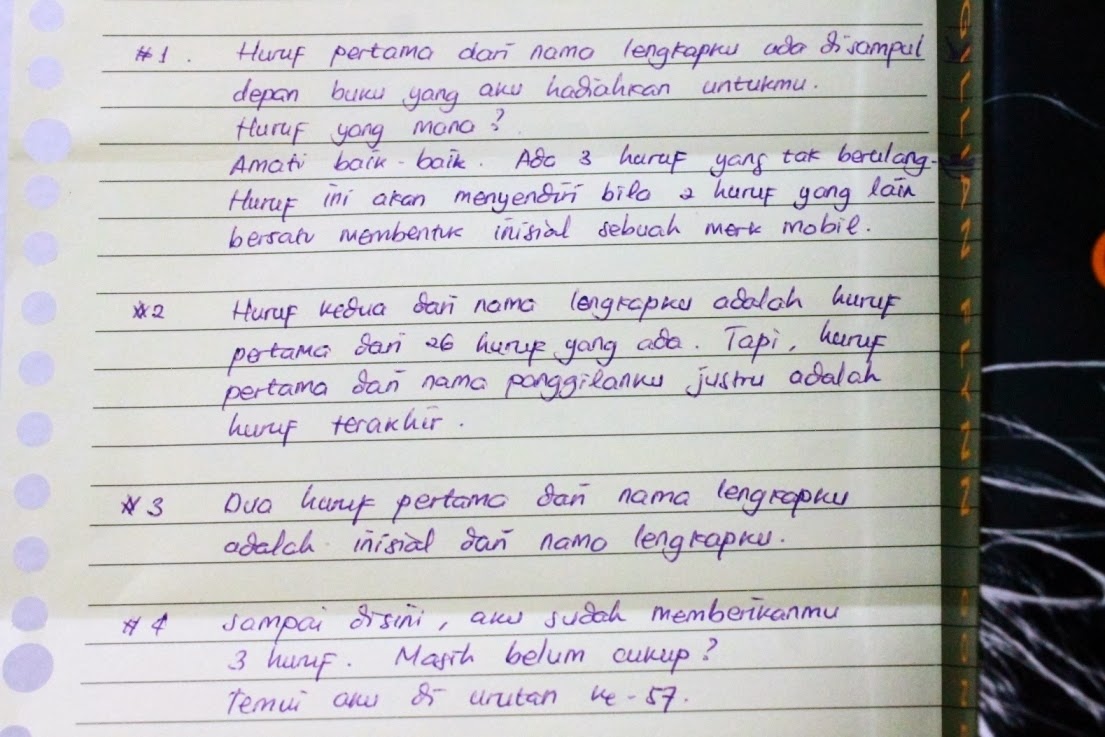 #1. Huruf pertama dari nama lengkapku ada disampul
depan buku yang aku hadiahkan untukmu.
Huruf yang mana?
Amati baik-baik. Ada 3 huruf yang tak berulang.
Huruf ini akan menyendiri bila 2 huruf yang lain
bersatu membentuk inisial sebuah merk mobil.
#2 Huruf kedua dari nama lengkapku adalah huruf
pertama dari 26 huruf yang ada. Tapi, huruf
pertama dari nama panggilanku justru adalah
huruf terakhir.
#3 Dua huruf pertama dari nama lengkapku
adalah inisial dari nama lengkapku.
#4 Sampai disini, aku sudah memberikanmu
3 huruf. Masih belum cukup?
Temui aku di urutan ke-57.
GILLIAN FLYNN GON